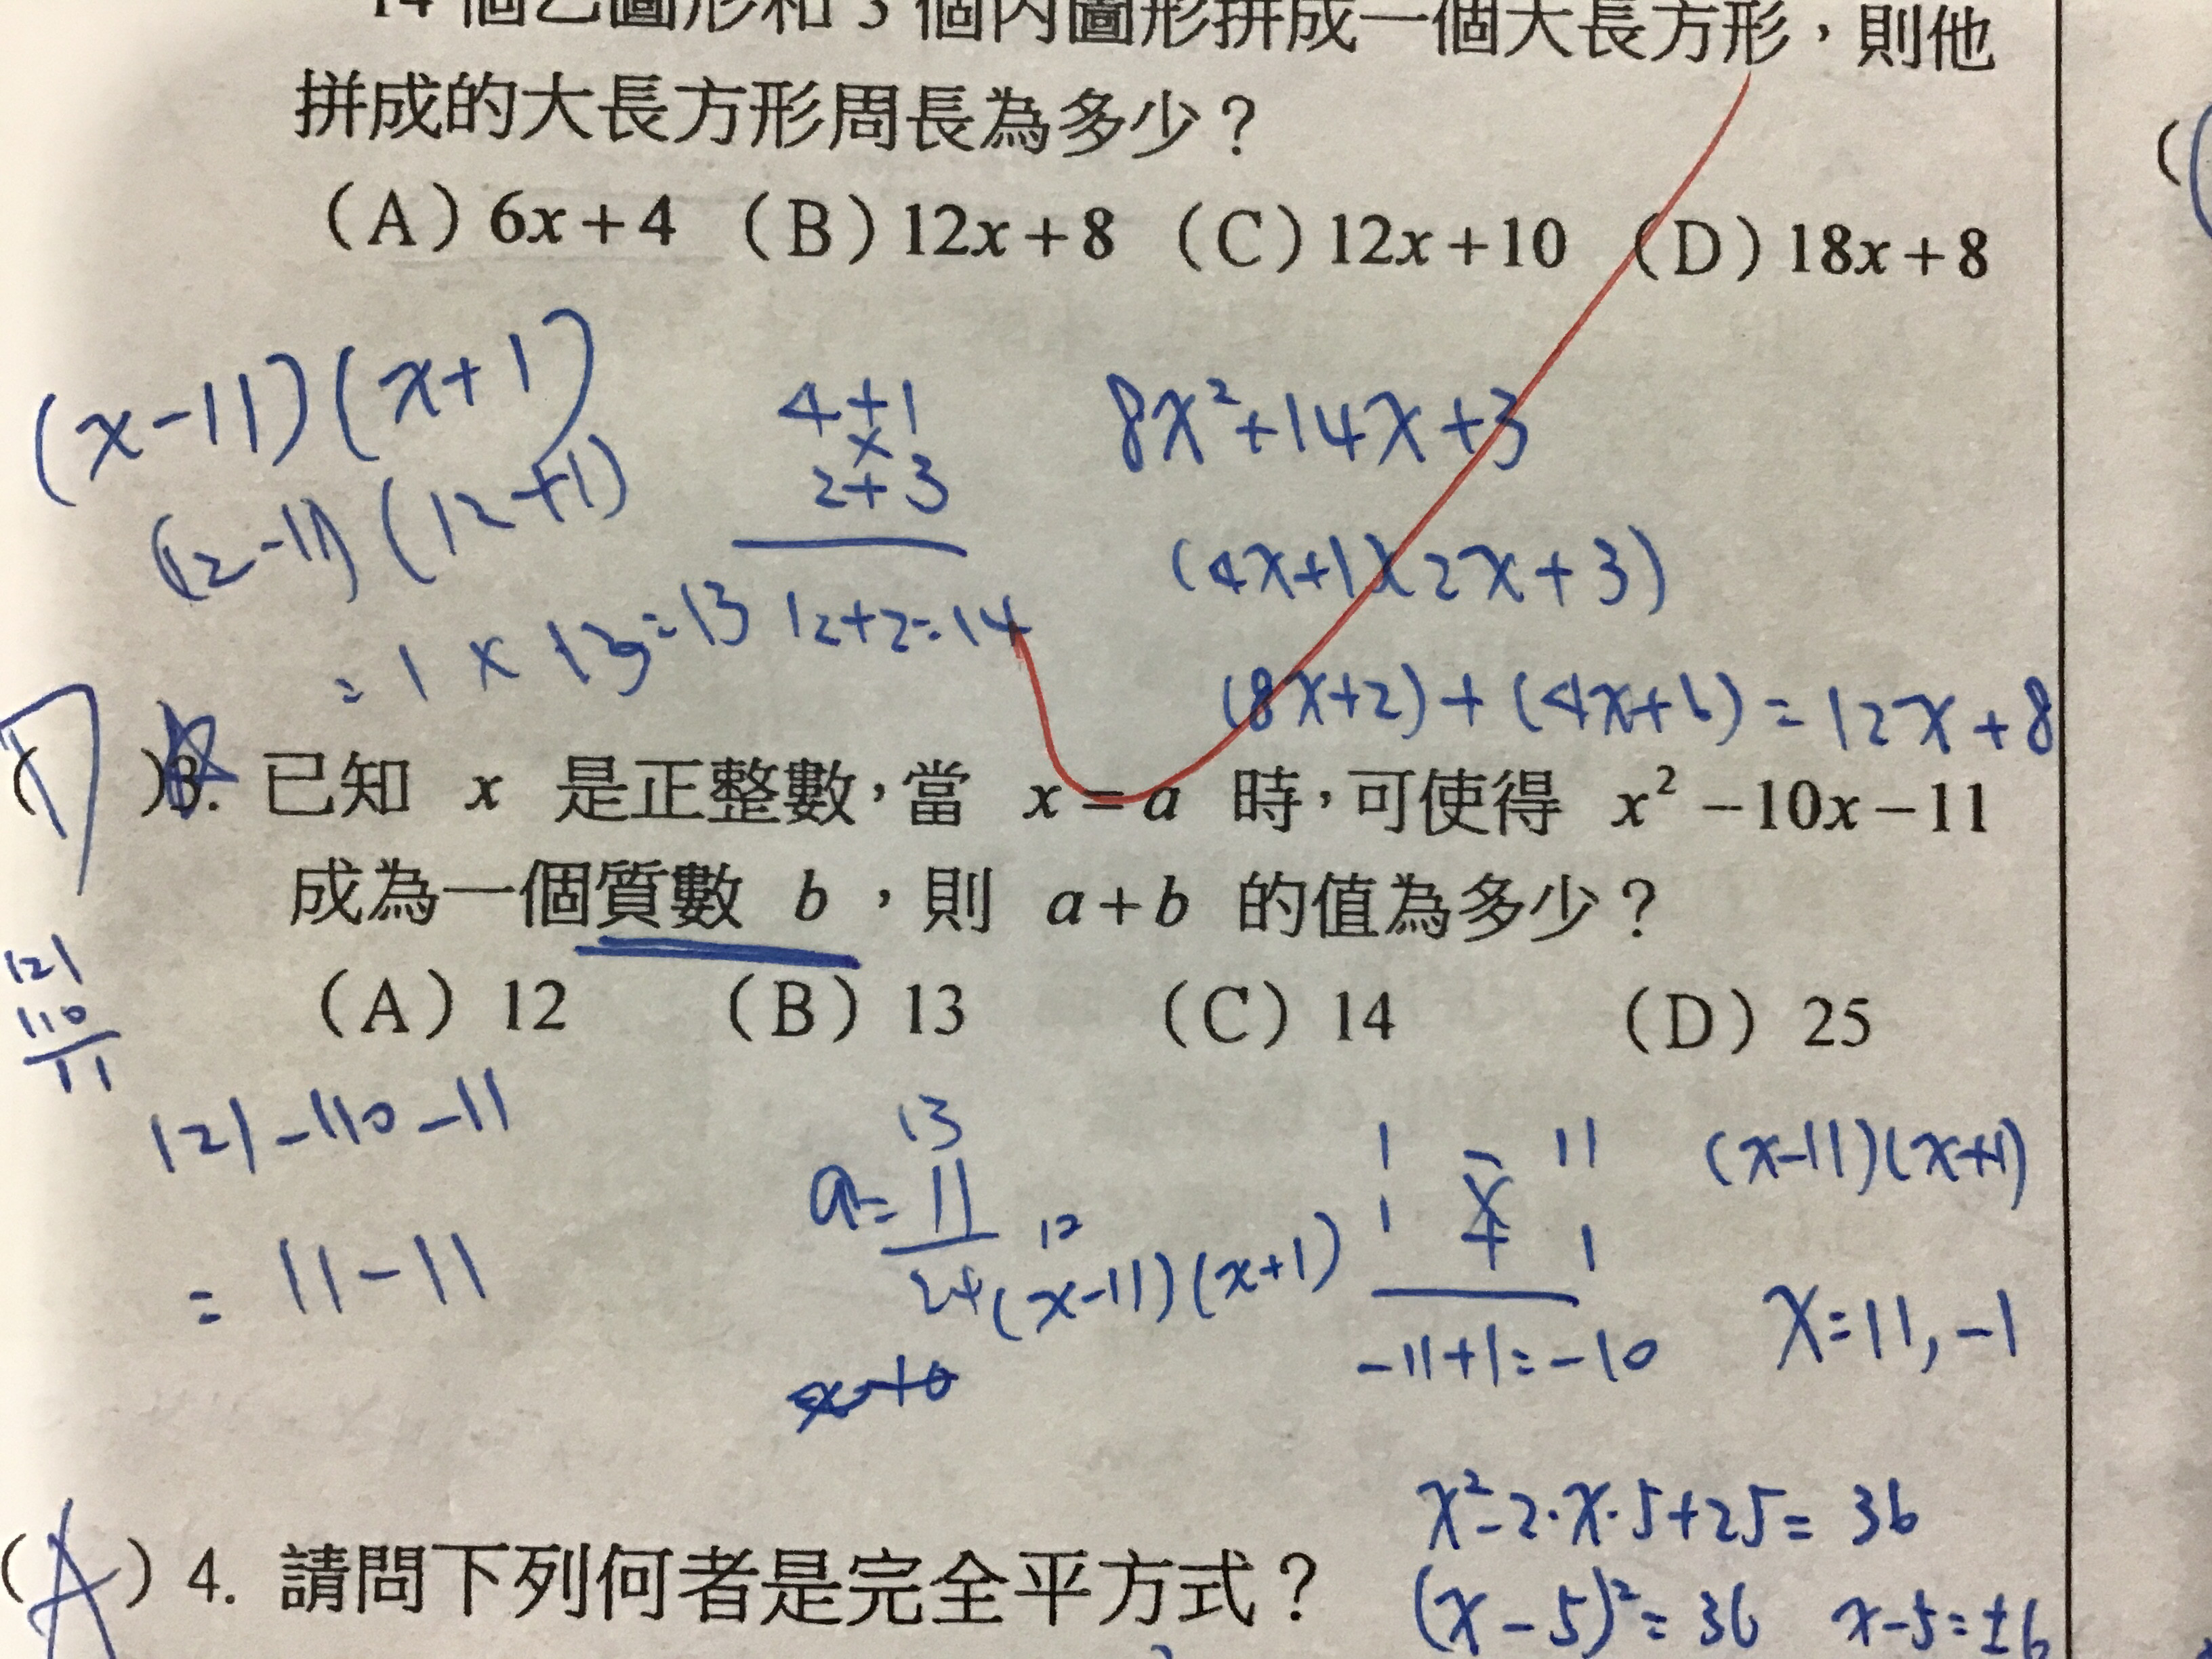 14 個乙圖形和 3 個丙圖形拼成一個大長方形，則他
拼成的大長方形周長為多少？
（A）6x+4 （B）12x+8 （C）12x+10 （D）18x+8
(x-11)(x+1)
(12-11)(12+1)
=1×13=13
4+1
×
2+3
12+2=14
8x²+14x+3
(4x+1)(2x+3)
(8x+2)+(4x+6)=12x+8
( )3. 已知 x 是正整數，當 x=a 時，可使得 x²-10x-11
成為一個質數 b ，則 a+b 的值為多少？
（A）12 （B）13 （C）14 （D）25
121
110
11
121-110-11
=11-11
13
a=11
24
12
(x-11)(x+1)
1 - 11
×
1 + 1
-11+1=-10
(x-11)(x+1)
x=11,-1
x²-2·x·5+25=36
(x-5)²=36 x-5=±6
(A) 4. 請問下列何者是完全平方式？